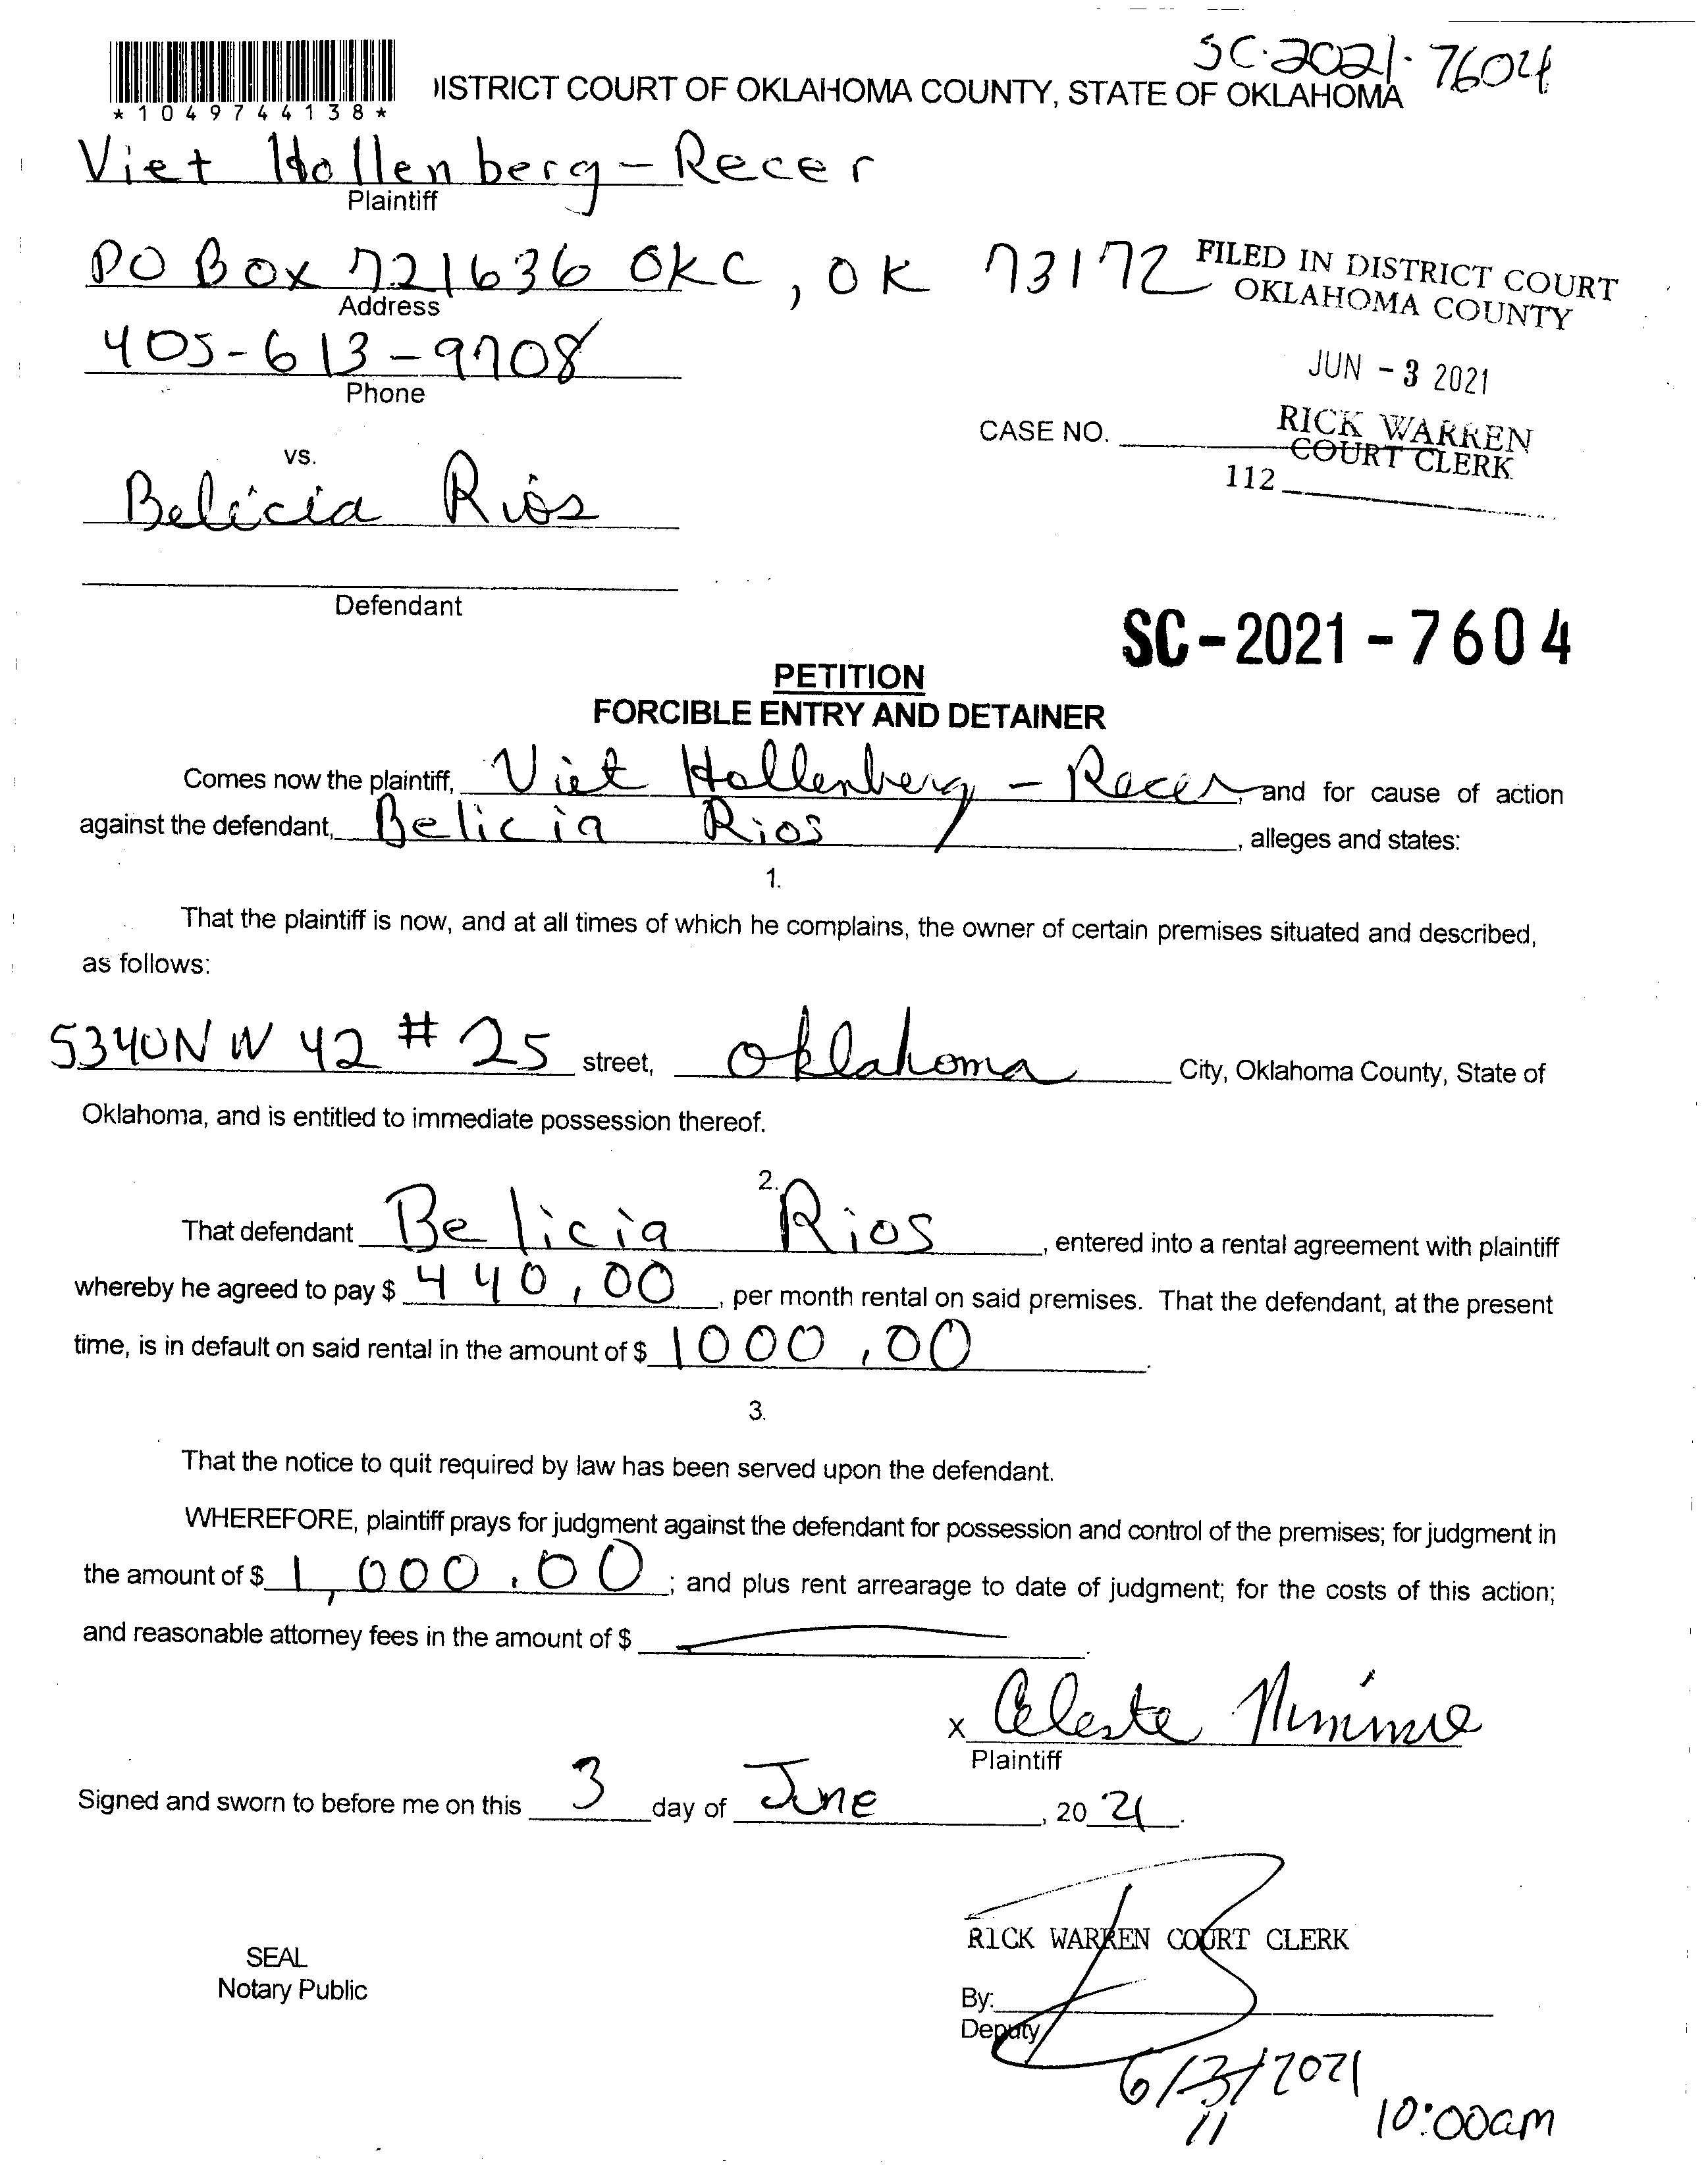 SC-2021-7604
*1049744138*
ISTRICT COURT OF OKLAHOMA COUNTY, STATE OF OKLAHOMA
Viet Hollenberg-Recer
Plaintiff
PO Box 721636 OKC, OK 73172
Address
FILED IN DISTRICT COURT
OKLAHOMA COUNTY
405-613-9708
Phone
JUN - 3 2021
CASE NO.
RICK WARREN
COURT CLERK
112
vs.
Belicia Rios
Defendant
SC-2021-7604
PETITION
FORCIBLE ENTRY AND DETAINER
Comes now the plaintiff, Viet Hollenberg-Recer, and for cause of action
against the defendant, Belicia Rios, alleges and states:
1.
That the plaintiff is now, and at all times of which he complains, the owner of certain premises situated and described,
as follows:
5340 NW 42 # 25 street, Oklahoma City, Oklahoma County, State of
Oklahoma, and is entitled to immediate possession thereof.
2.
That defendant Belicia Rios, entered into a rental agreement with plaintiff
whereby he agreed to pay $ 440.00, per month rental on said premises. That the defendant, at the present
time, is in default on said rental in the amount of $ 1000.00.
3.
That the notice to quit required by law has been served upon the defendant.
WHEREFORE, plaintiff prays for judgment against the defendant for possession and control of the premises; for judgment in
the amount of $ 1,000.00; and plus rent arrearage to date of judgment; for the costs of this action;
and reasonable attorney fees in the amount of $
x Celeste
Plaintiff
Signed and sworn to before me on this 3 day of June, 2021.
RICK WARREN COURT CLERK
SEAL
Notary Public
By:
Deputy
6/3/2021
11
10:00am